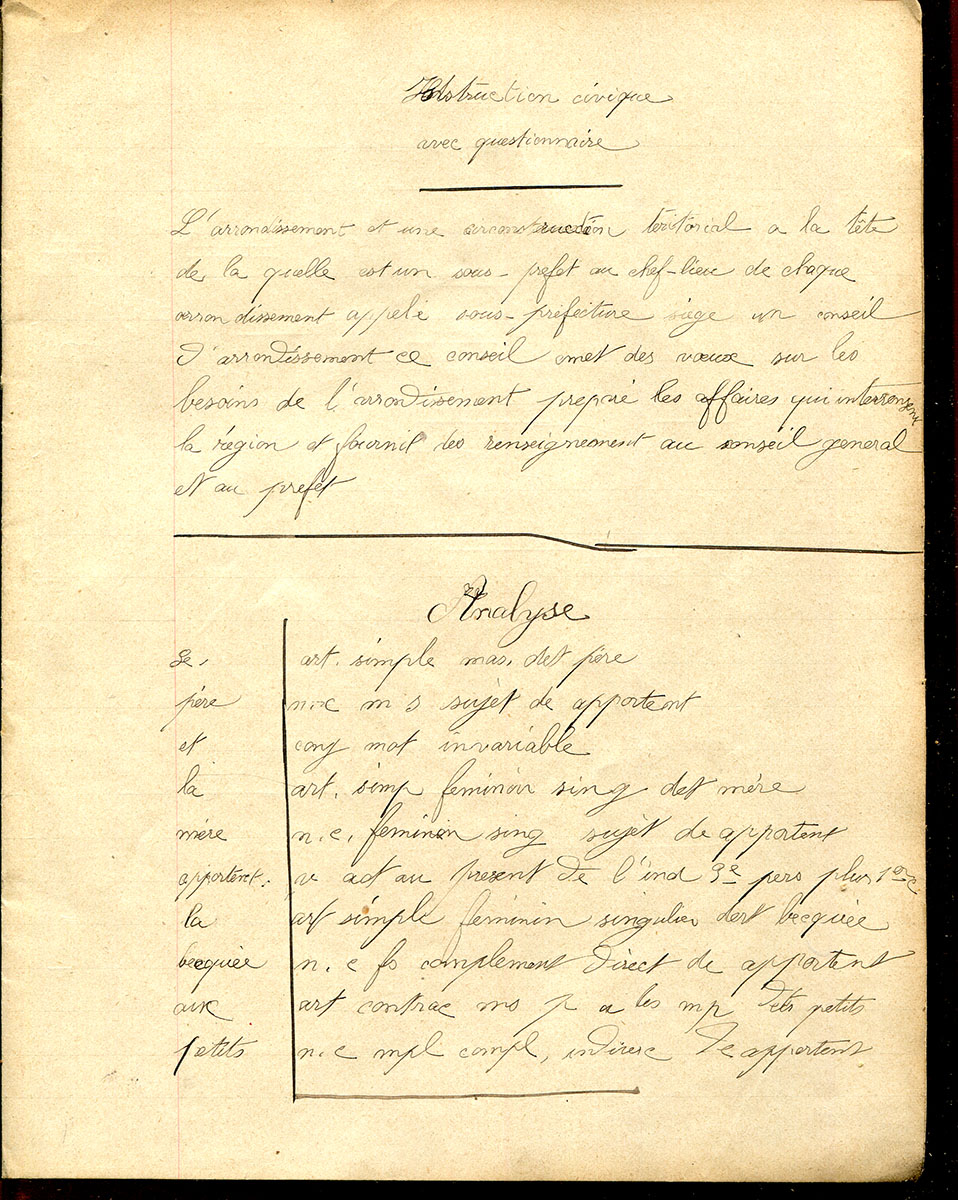 Instruction civique
avec questionnaire
L'arrondissement et une circonstruction teritorial a la tête
de la quelle est un sous-prefet au chef-lieu de chaque
arron dissement appelé sous-prefecture siège un conseil
d'arrondissement ce conseil omet des vœux sur les
besoins de l'arrondissement preparé les affaires qui
la région et fournit des renseignement au conseil general
et au prefet
Analyse
Le, art. simple mas. det père
père n.c m s sujet de apportent
et conj mot invariable
la art. simp feminin sing det mère
mère n.c. feminin sing sujet de apportent
apportent. v act au present de l'ind 3e pers plur 1ere c
la art simple feminin singulier det becquée
becquée n.c fs complement direct de apportent
aux art contrac ms p a les mp dét petits
petits n.c mpl compl, indirec de apportent